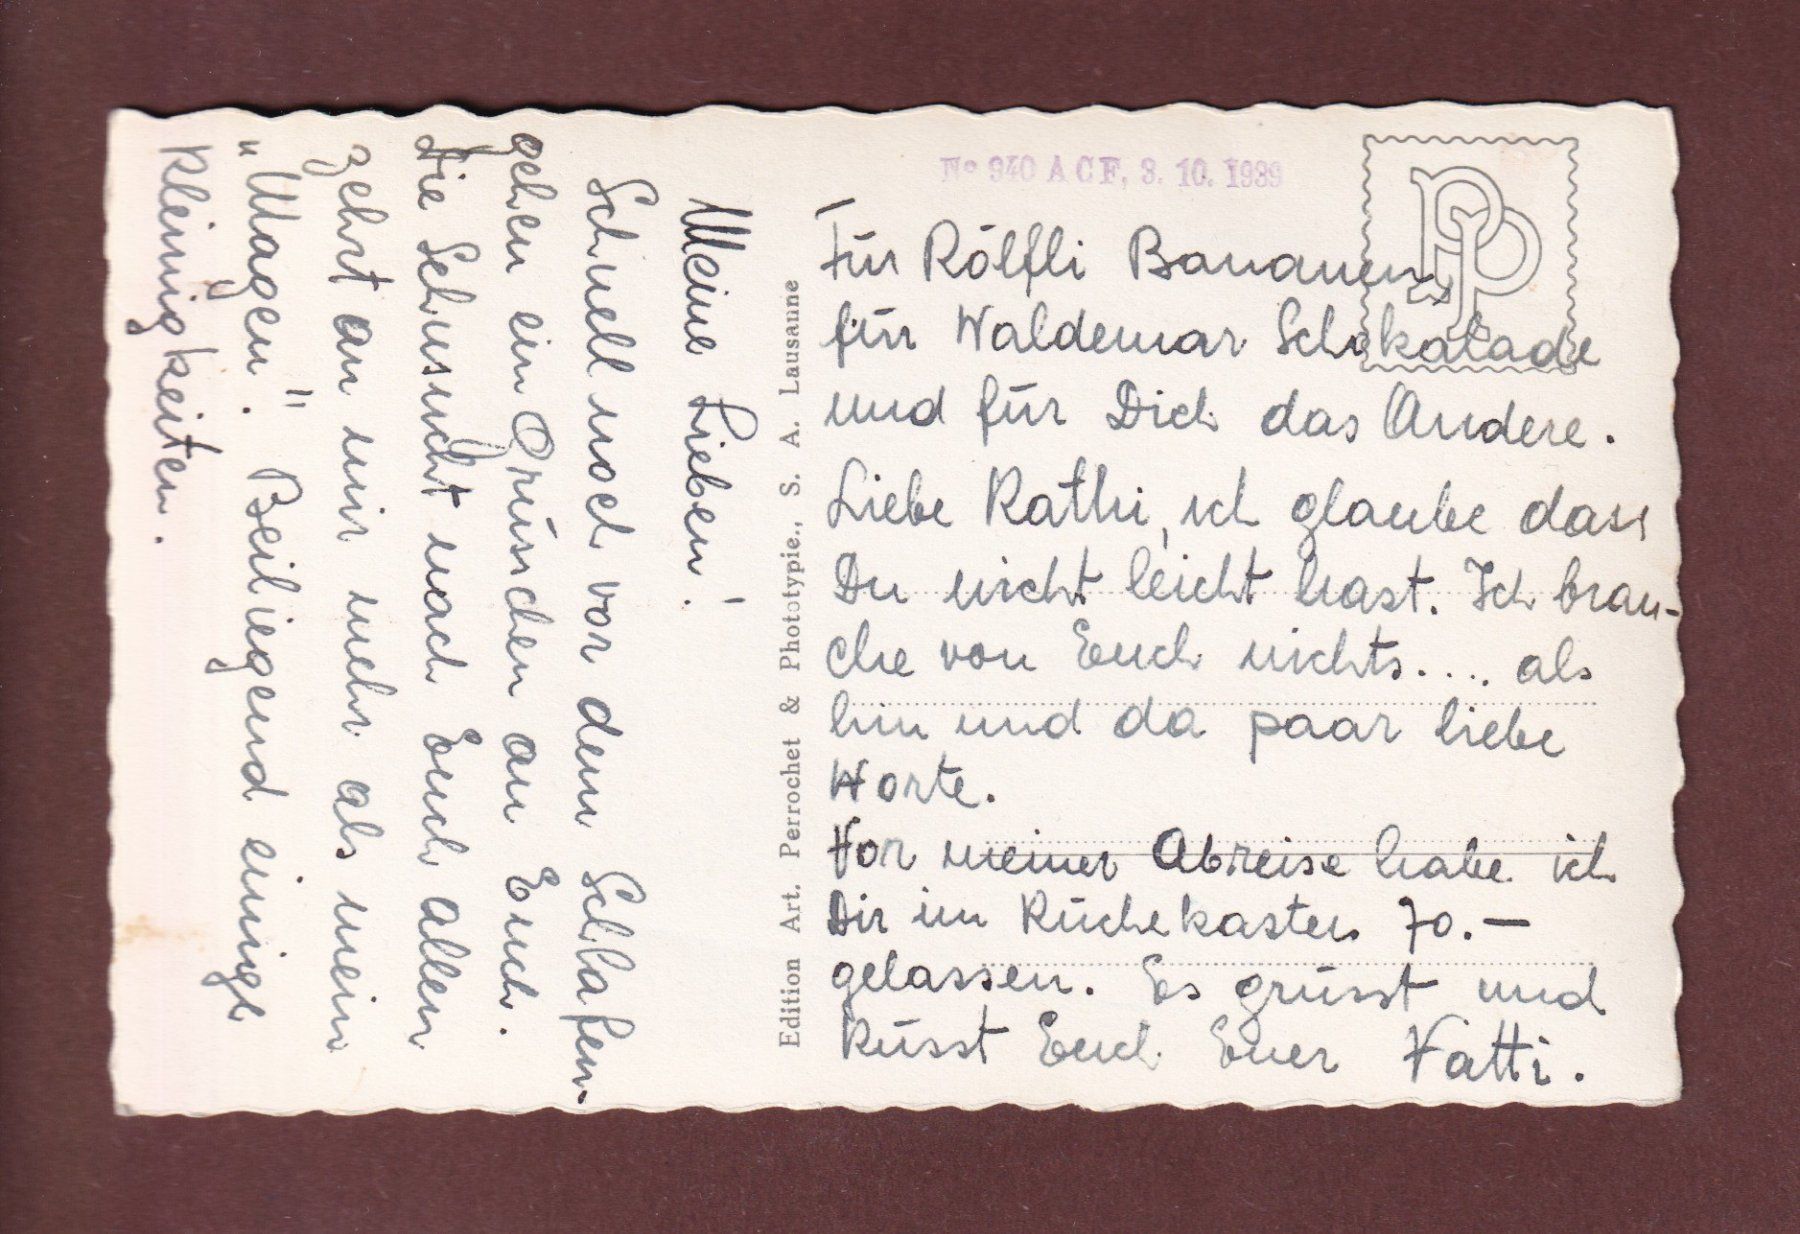 Meine Lieben!
Schnell noch vor dem Schlafen-
gehen ein Grüsschen an Euch.
Die Sehnsucht nach Euch allen
zehrt an mir mehr als mein
„Magen". Beiliegend einige
Kleinigkeiten.
Edition Art. Perrochet & Phototypie., S. A. Lausanne
No 940 A C F, 3. 10. 1939
PPJ
Für Rölfli Bananen,
für Waldemar Schokalade
und für Dich das Andere.
Liebe Kathi, ich glaube dass
Du nicht leicht hast. Ich brau-
che von Euch nichts.... als
hin und da paar liebe
Worte.
Vor meiner Abreise habe ich
Dir im Küchekasten 70.—
gelassen. Es grüsst und
küsst Euch Euer Vatti.